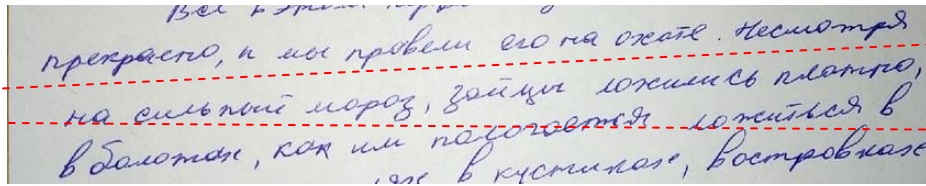 Все в этом
прекрасно, и мы провели его на охоте. Несмотря
на сильный мороз, зайцы ложились плотно,
в болотах, как им пологается ложиться в
в кустиках, в островках